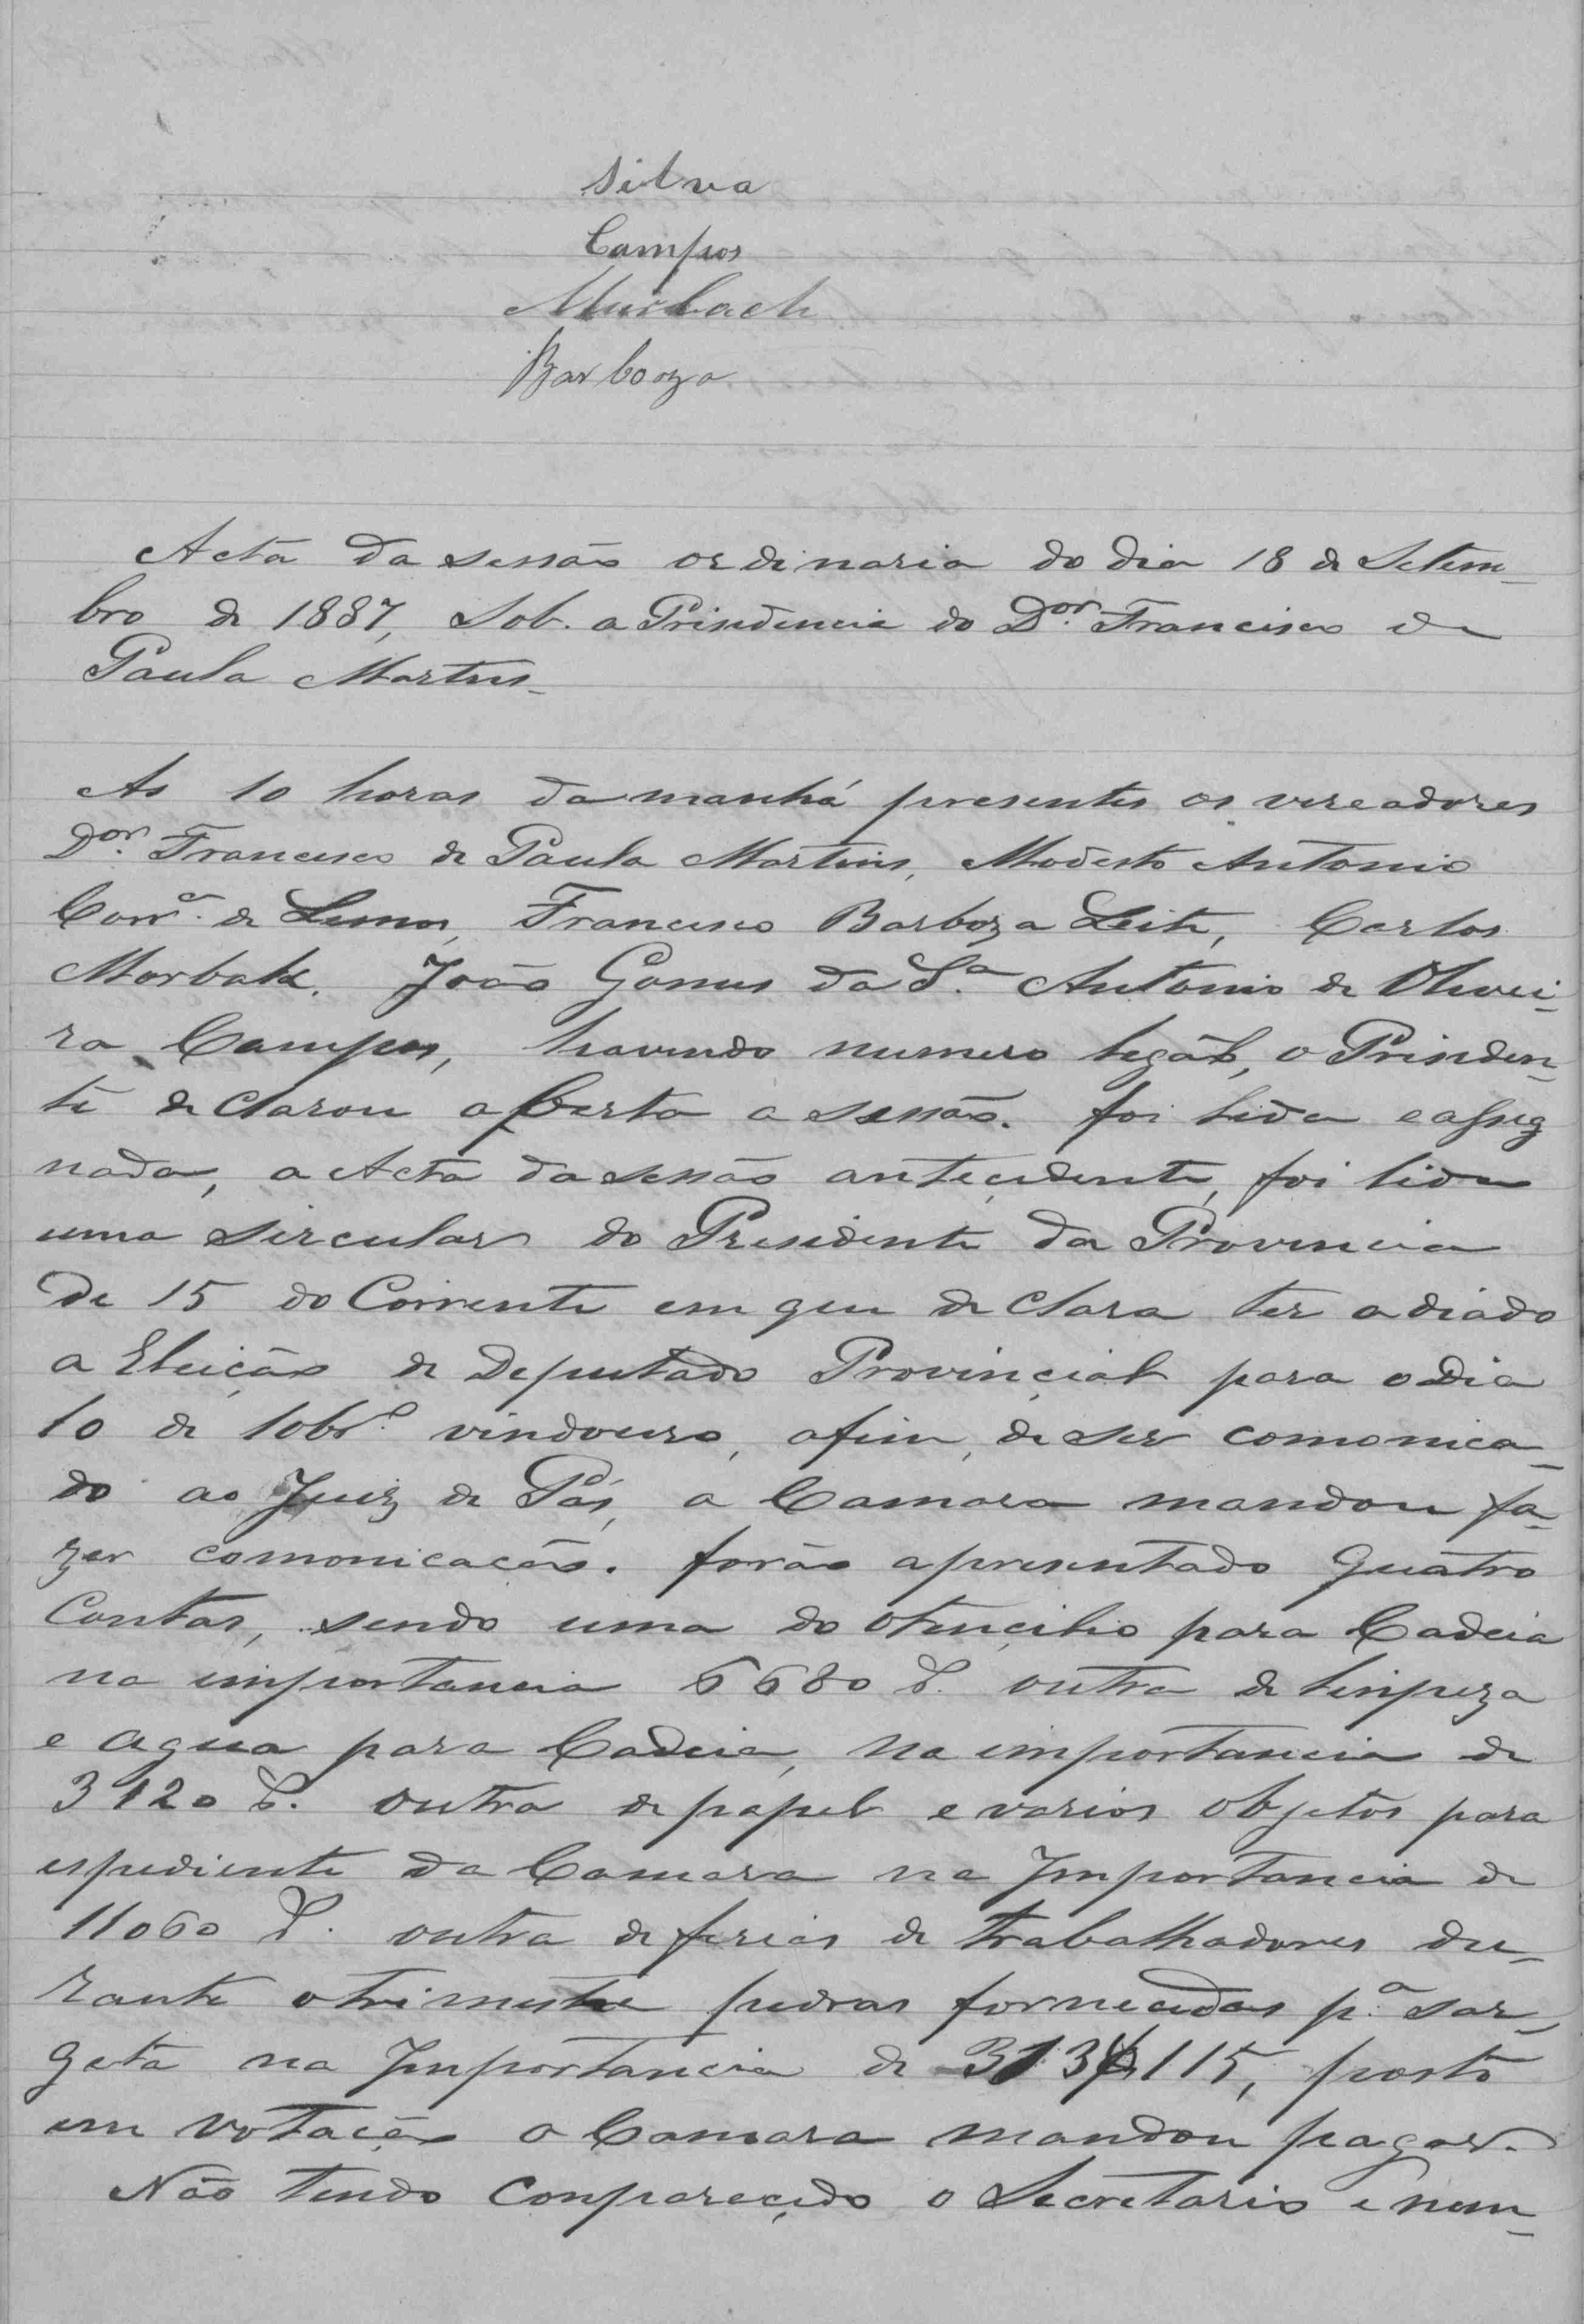 Silva
Campos
Murbach
Barboza
Acta da sessão ordinaria do dia 18 de Setem-
bro de 1887, Sob. a Prisidencia do Dor. Francisco de
Paula Martins-
As 10 horas da manhá presentes os vereadores
Dor. Francisco de Paula Martins, Modesto Antonio
Corrª. de Lemos, Francisco Barboza Leite, Carlos
Morbak. João Gomes da Sª. Antonio de Olivei-
ra Campos, havendo numero legál, o Prisiden-
te declarou aberta a sessão. foi lida e assig
nada, a Acta da sessão anteçedente, foi lida
uma sircular do Presidente da Provincia
de 15 do Corrente em que declara ter adiado
a Eleição de Deputado Provinçial para o dia
10 de 10brº. vindouro, afim, de ser comonica-
do ao Juiz de Pás, a Camara mandou fa-
zer comonicação. forão apresentado quatro
Contas, sendo uma do otençilio para Cadeia
na importancia 6680 rs. outra de limpeza
e agua para Cadeia, na importancia de
3120 rs. outra de papel e varios objetos para
espediente da Camara na Importancia de
11060 rs. outra de ferias de trabalhadores du-
rante o trimestre pedras fornecidas pª. sar-
geta na Importancia de 313$115, posto
em votação a Camara mandou pagar.
Não tendo Conpareçido o Secretario e nem-